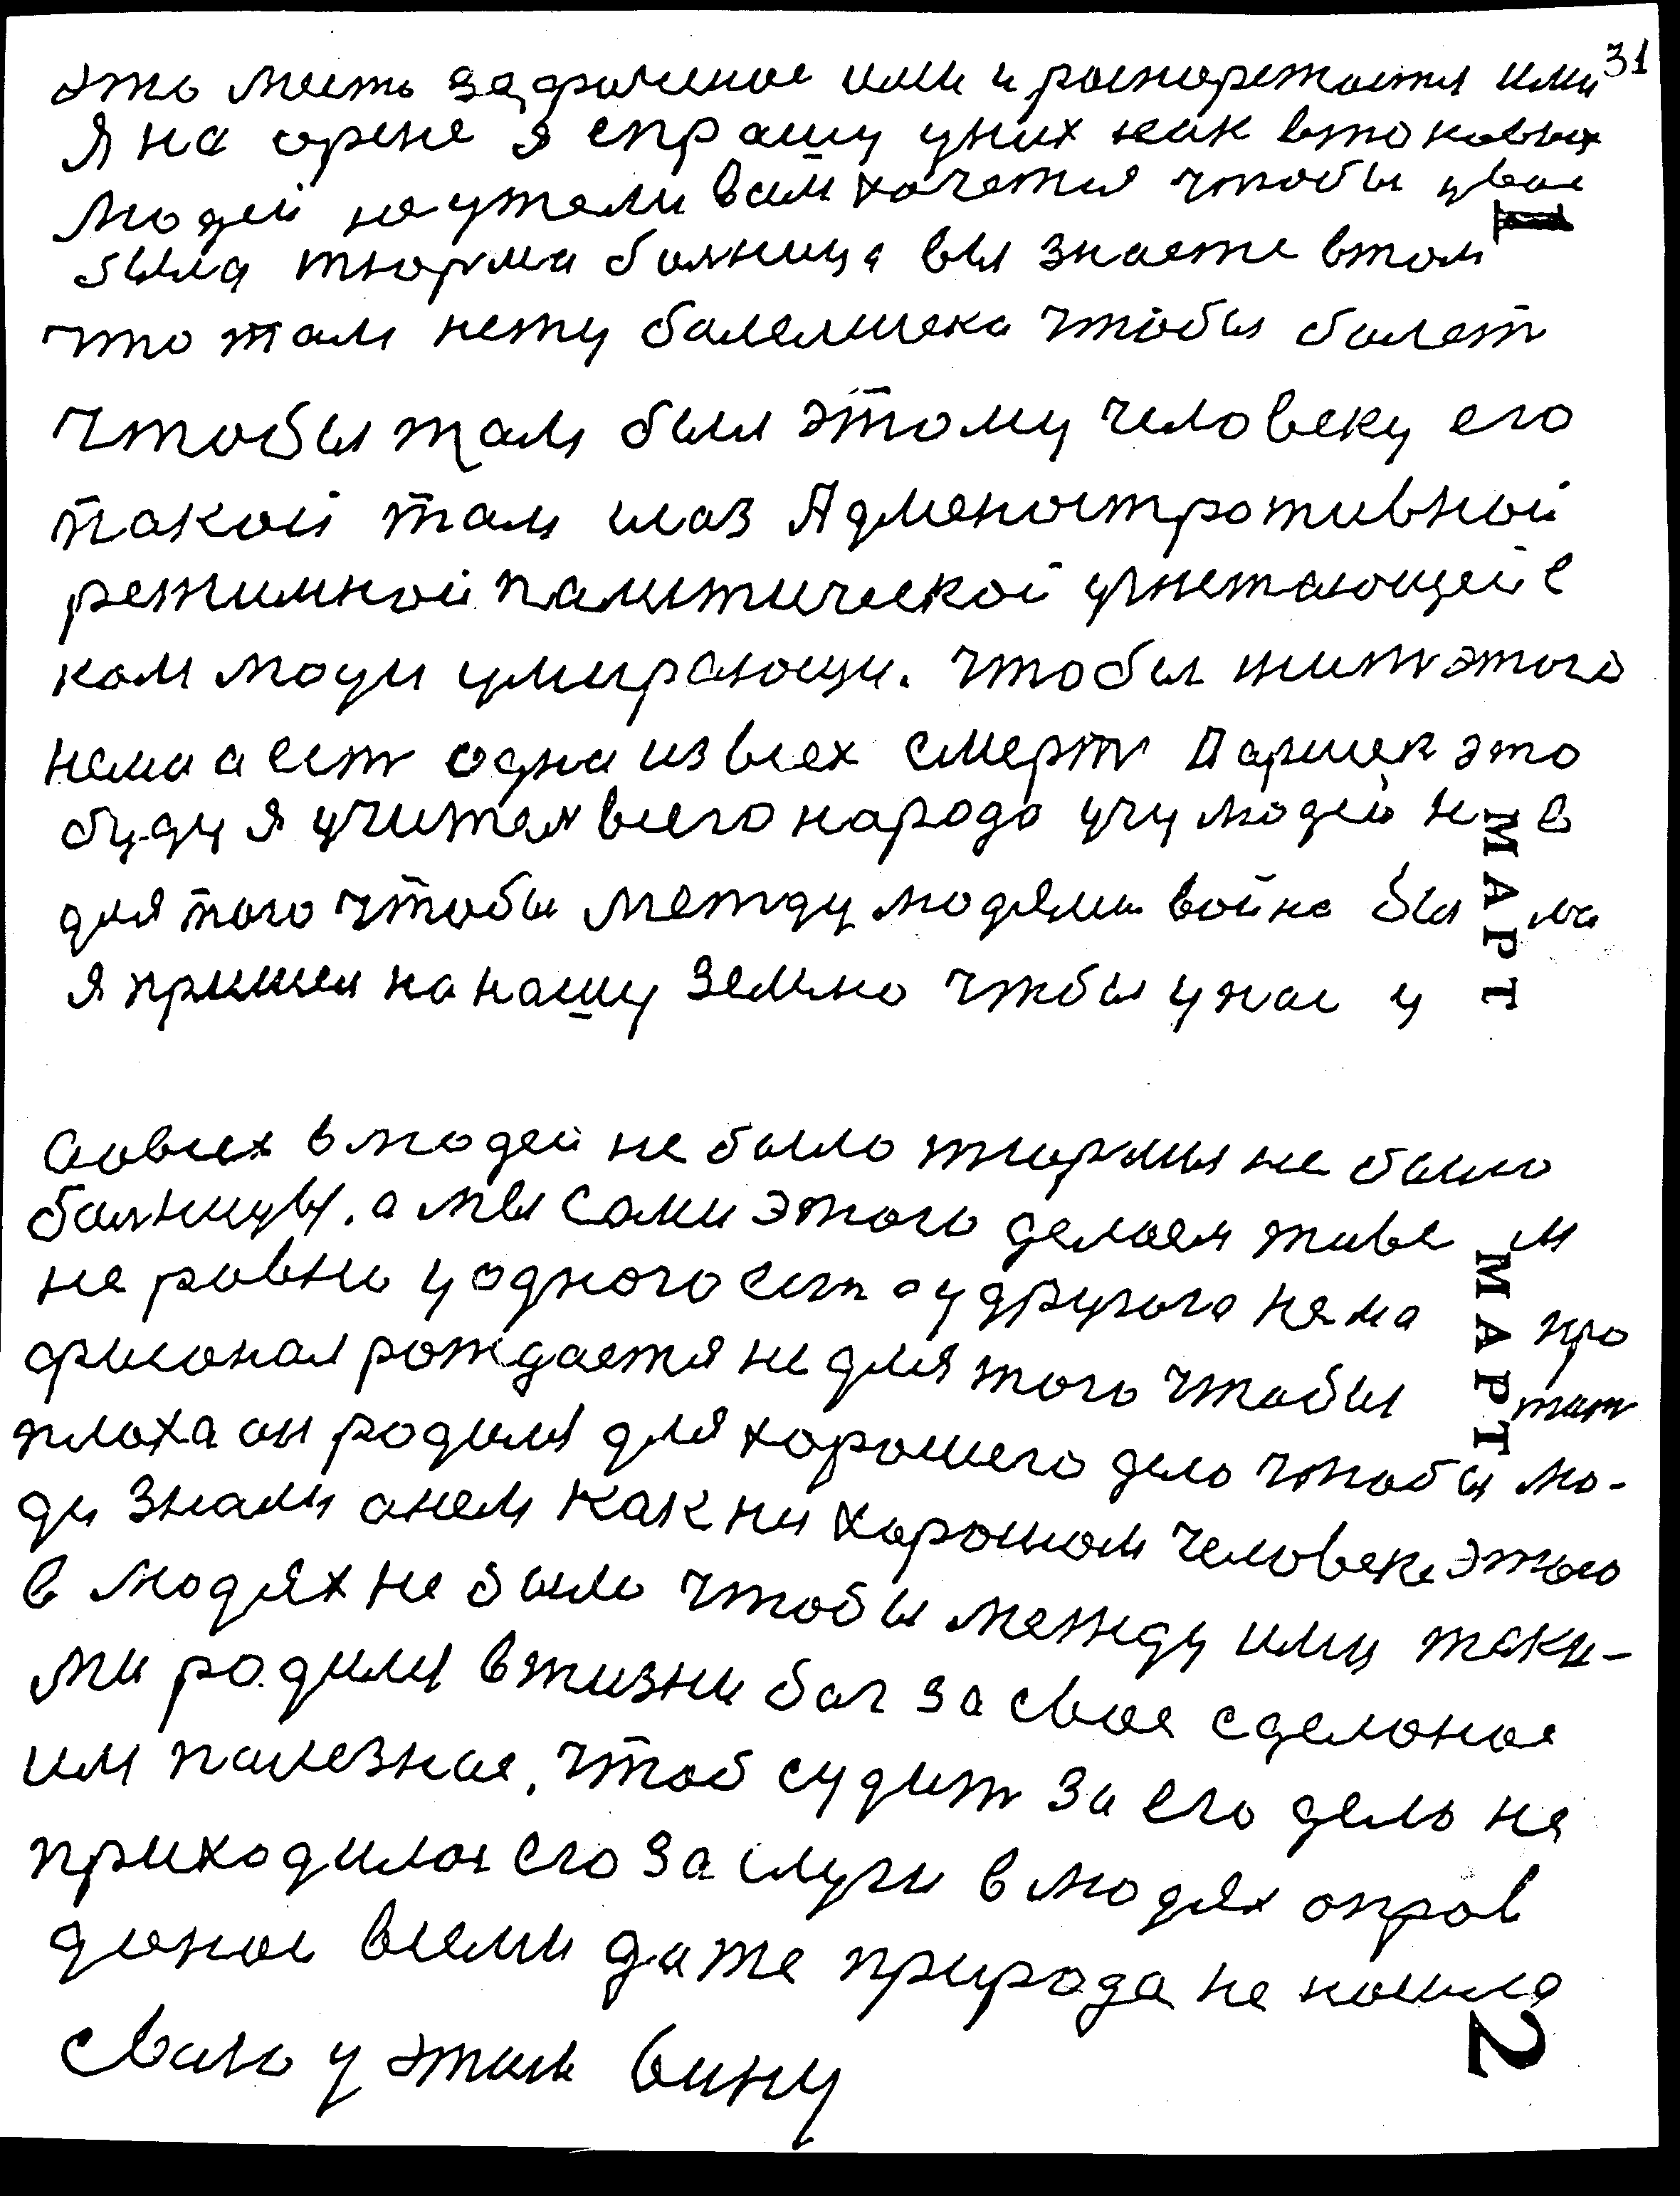 31
это месть захваченое ими и роспорежается ими
Я на арене я спрашу у них как в таковых
людей неужели вам хочется чтобы у вас
1
была тюрма болница вы знаете в том
что там нету балелшека чтобы болет
Чтобы там был этому человеку его
такой там глаз Админостротивной
режимной палитической угнетающей в
ком люди умирающи. Чтобы жит этого
нема а ест одна из всех смерт Паршек это
буду я учител всего народа учу людей не в
МАРТ
для того чтобы между людями война была
я пришел на нашу землю чтбы у нас у
Совсех в людей не было тюрмы не было
болницы, а мы сами этого делоем живем
не ровно у одного ест а у другого нема про
МАРТ
фисонал рождается не для того чтобы жит
плоха он родился для хорошего дело чтобы лю-
ди знали анем как ни хорошом человеке этого
в людях не было чтобы между ими таки-
ми родился в жизни бог за свое сделоное
им палезное, чтоб судит за его дело не
приходилос его заслуги в людях опров
доное всеми даже природа не ношла
2
сваю у этим вину